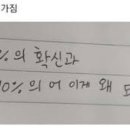 가짐
%의 확신과
0%의 어 이게 왜 되